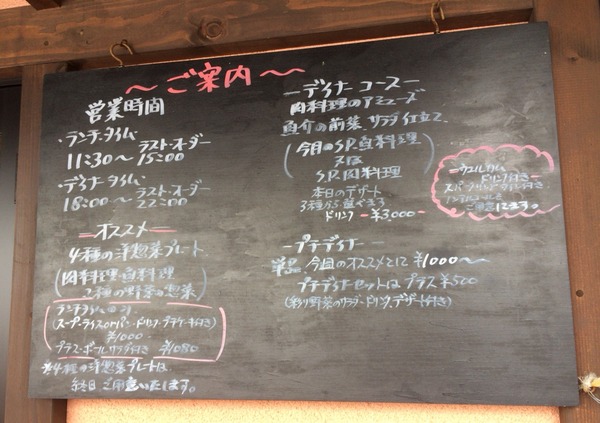 ～ご案内～
営業時間
・ランチタイム
ラストオーダー
11:30～15:00
・ディナータイム
ラストオーダー
18:00～22:00
＝オススメ＝
4種の洋惣菜プレート
(肉料理・魚料理
2種の野菜の惣菜)
ランチタイムのみ
(スープ・ライスorパン・ドリンク・プチケーキ付き)
¥1000
プラス・ボールサラダ付き ¥1080
※4種の洋惣菜プレートは
終日ご用意いたします。
ーディナーコースー
肉料理のアミューズ
魚介の前菜 サラダ仕立て
(今月のS.P.魚料理
又は
S.P.肉料理)
本日のデザート
3種から選べます
ドリンク ー¥3,000ー
ーウエルカム
ドリンク付きー
スパークリングワイン付き
ご用意します。
ープチディナーー
単品 今週のオススメとして ¥1000～
プチディナーセットは プラス ¥500
(彩り野菜のサラダ・ドリンク・デザート付き)